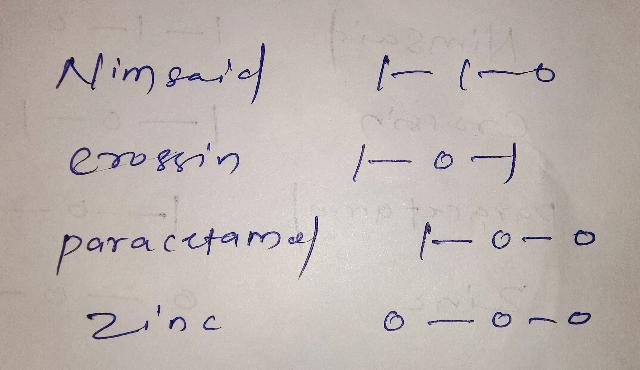 Nimsaid 1-1-0
crossin 1-0-1
paracetamol 1-0-0
zinc 0-0-0